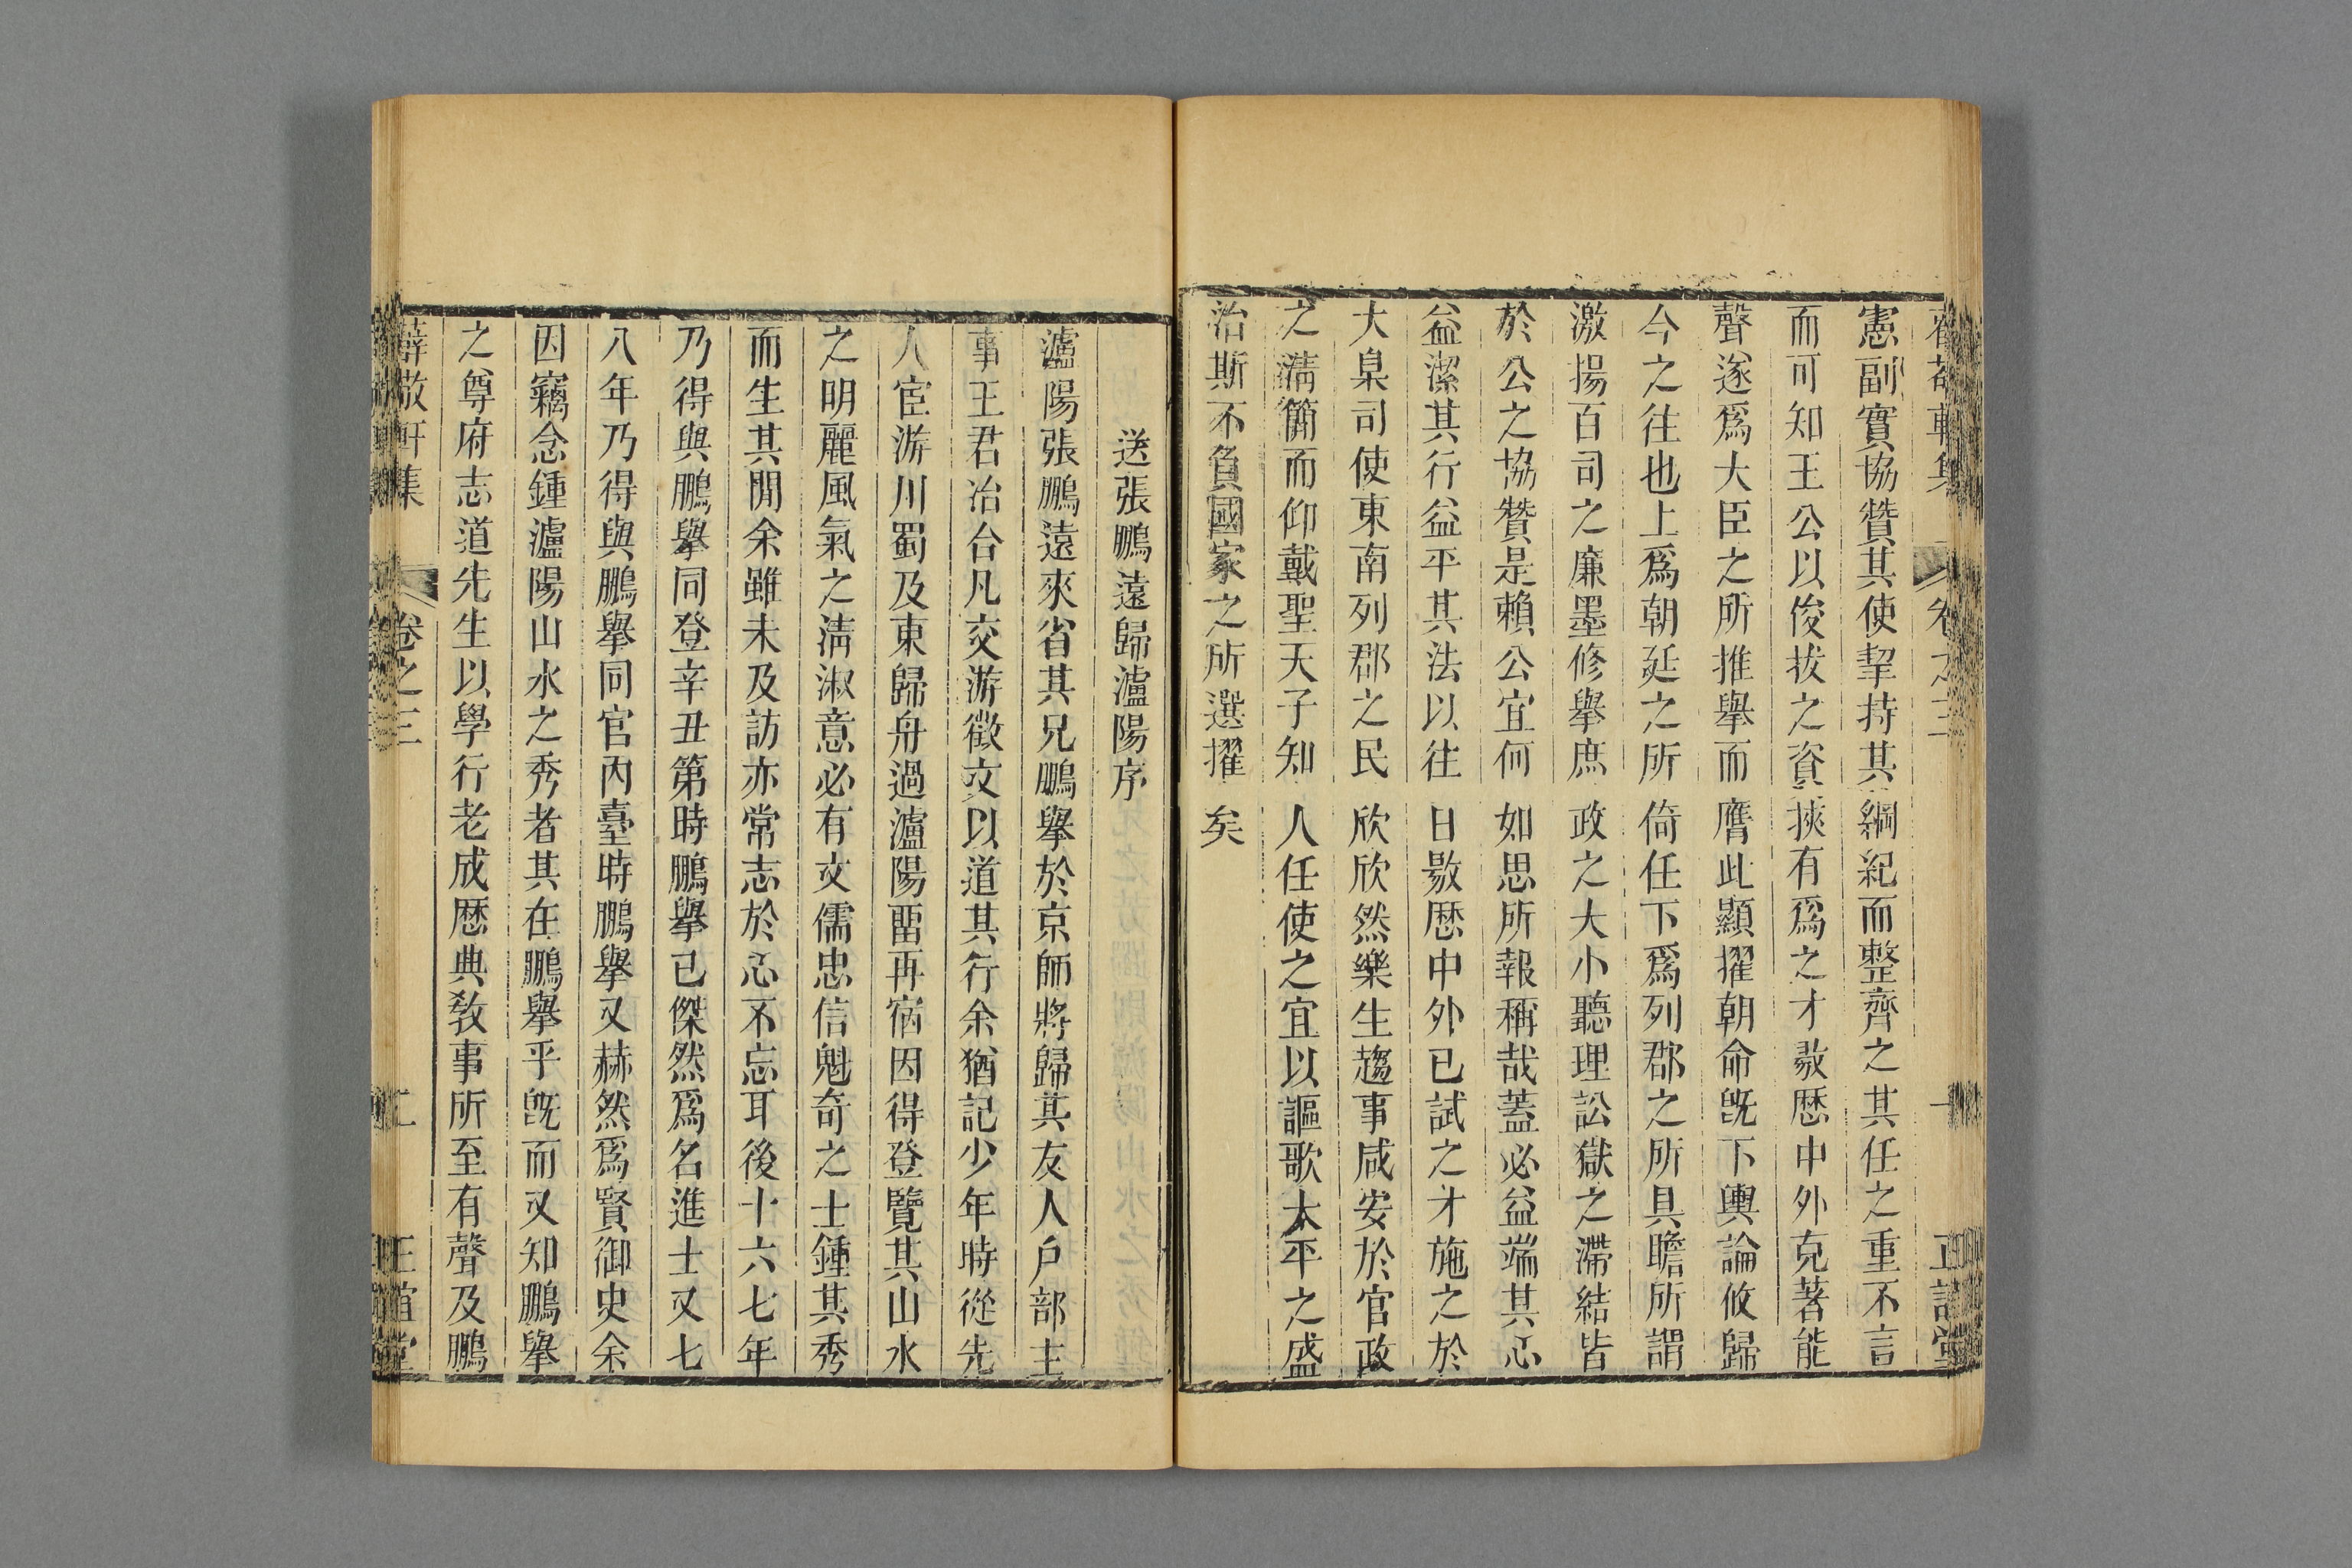 憲副實協贊其使挈持其綱紀而整齊之其任之重不言
而可知王公以俊拔之資挾有爲之才敭歷中外克著能
聲遂爲大臣之所推舉而膺此顯擢朝命旣下輿論攸歸
今之往也上爲朝廷之所倚任下爲列郡之所具瞻所謂
激揚百司之廉墨修舉庶政之大小聽理訟獄之滯結皆
於公之協贊是賴公宜何如思所報稱哉蓋必益端其心
益潔其行益平其法以往日敭歷中外已試之才施之於
大臬司使東南列郡之民欣欣然樂生趨事咸安於官政
之淸簡而仰戴聖天子知人任使之宜以謳歌太平之盛
治斯不負國家之所選擢矣
送張鵬遠歸瀘陽序
瀘陽張鵬遠來省其兄鵬舉於京師將歸其友人户部主
事王君冶合凡交游徵文以道其行余猶記少年時從先
人宦游川蜀及東歸舟過瀘陽畱再宿因得登覽其山水
之明麗風氣之淸淑意必有文儒忠信魁奇之士鍾其秀
而生其閒余雖未及訪亦常志於心不忘耳後十六七年
乃得與鵬舉同登辛丑第時鵬舉已傑然爲名進士又七
八年乃得與鵬舉同官內臺時鵬舉又赫然爲賢御史余
因竊念鍾瀘陽山水之秀者其在鵬舉乎旣而又知鵬舉
之尊府志道先生以學行老成歷典敎事所至有聲及鵬
薛敬軒集 卷之三 二 正誼堂